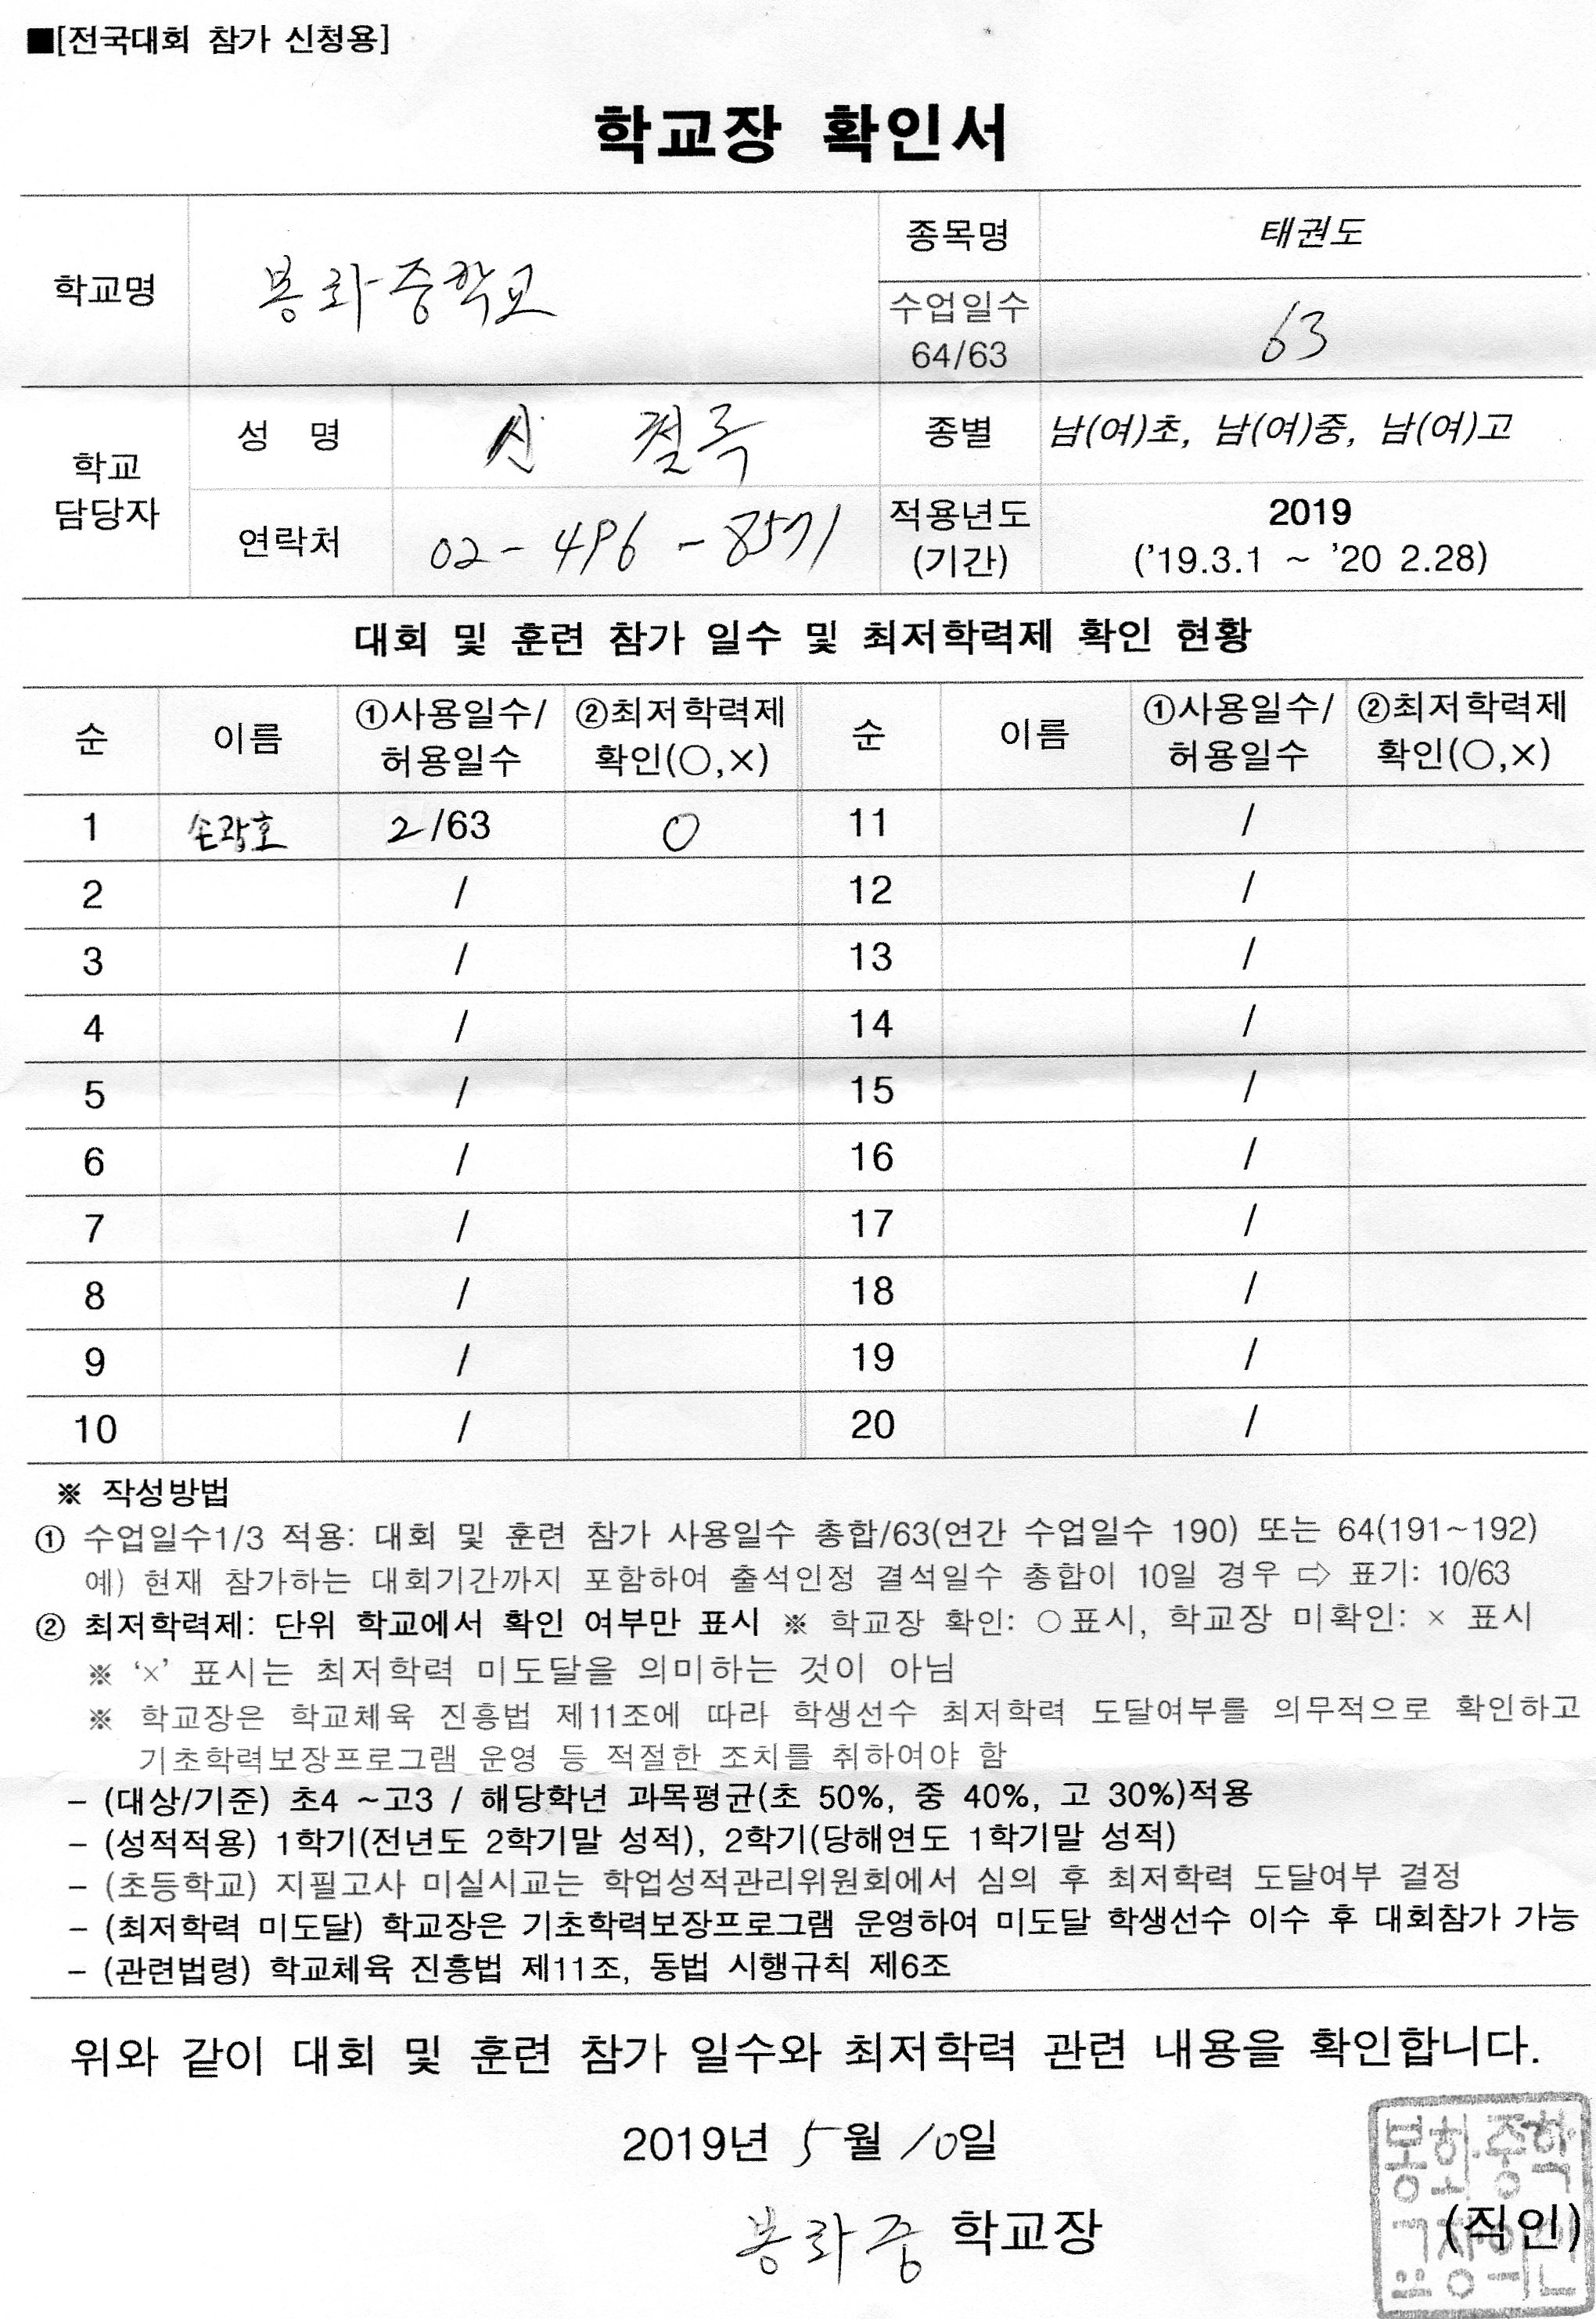 ■[전국대회 참가 신청용]
학교장 확인서
학교명 봉화중학교 종목명 태권도
수업일수 64/63 63
학교 담당자 성 명 신 철록 종별 남(여)초, 남(여)중, 남(여)고
연락처 02-496-8571 적용년도 (기간) 2019 ('19.3.1 ~ '20 2.28)
대회 및 훈련 참가 일수 및 최저학력제 확인 현황
순 이름 ①사용일수/허용일수 ②최저학력제 확인(○,×) 순 이름 ①사용일수/허용일수 ②최저학력제 확인(○,×)
1 손광호 2/63 ○ 11 /
2 / 12 /
3 / 13 /
4 / 14 /
5 / 15 /
6 / 16 /
7 / 17 /
8 / 18 /
9 / 19 /
10 / 20 /
※ 작성방법
① 수업일수1/3 적용: 대회 및 훈련 참가 사용일수 총합/63(연간 수업일수 190) 또는 64(191~192)
예) 현재 참가하는 대회기간까지 포함하여 출석인정 결석일수 총합이 10일 경우 ⇨ 표기: 10/63
② 최저학력제: 단위 학교에서 확인 여부만 표시 ※ 학교장 확인: ○표시, 학교장 미확인: × 표시
※ '×' 표시는 최저학력 미도달을 의미하는 것이 아님
※ 학교장은 학교체육 진흥법 제11조에 따라 학생선수 최저학력 도달여부를 의무적으로 확인하고
기초학력보장프로그램 운영 등 적절한 조치를 취하여야 함
- (대상/기준) 초4 ~고3 / 해당학년 과목평균(초 50%, 중 40%, 고 30%)적용
- (성적적용) 1학기(전년도 2학기말 성적), 2학기(당해연도 1학기말 성적)
- (초등학교) 지필고사 미실시교는 학업성적관리위원회에서 심의 후 최저학력 도달여부 결정
- (최저학력 미도달) 학교장은 기초학력보장프로그램 운영하여 미도달 학생선수 이수 후 대회참가 가능
- (관련법령) 학교체육 진흥법 제11조, 동법 시행규칙 제6조
위와 같이 대회 및 훈련 참가 일수와 최저학력 관련 내용을 확인합니다.
2019년 5월 10일
봉화중 학교장 (직인)
봉화중학
교장의인